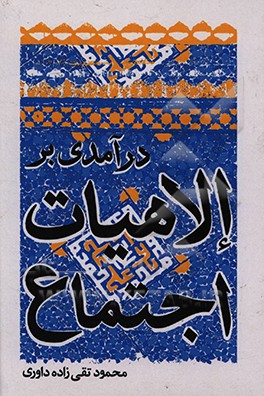 درآمدی بر
إلاهیات
اجتماع
محمود تقی زاده داوری